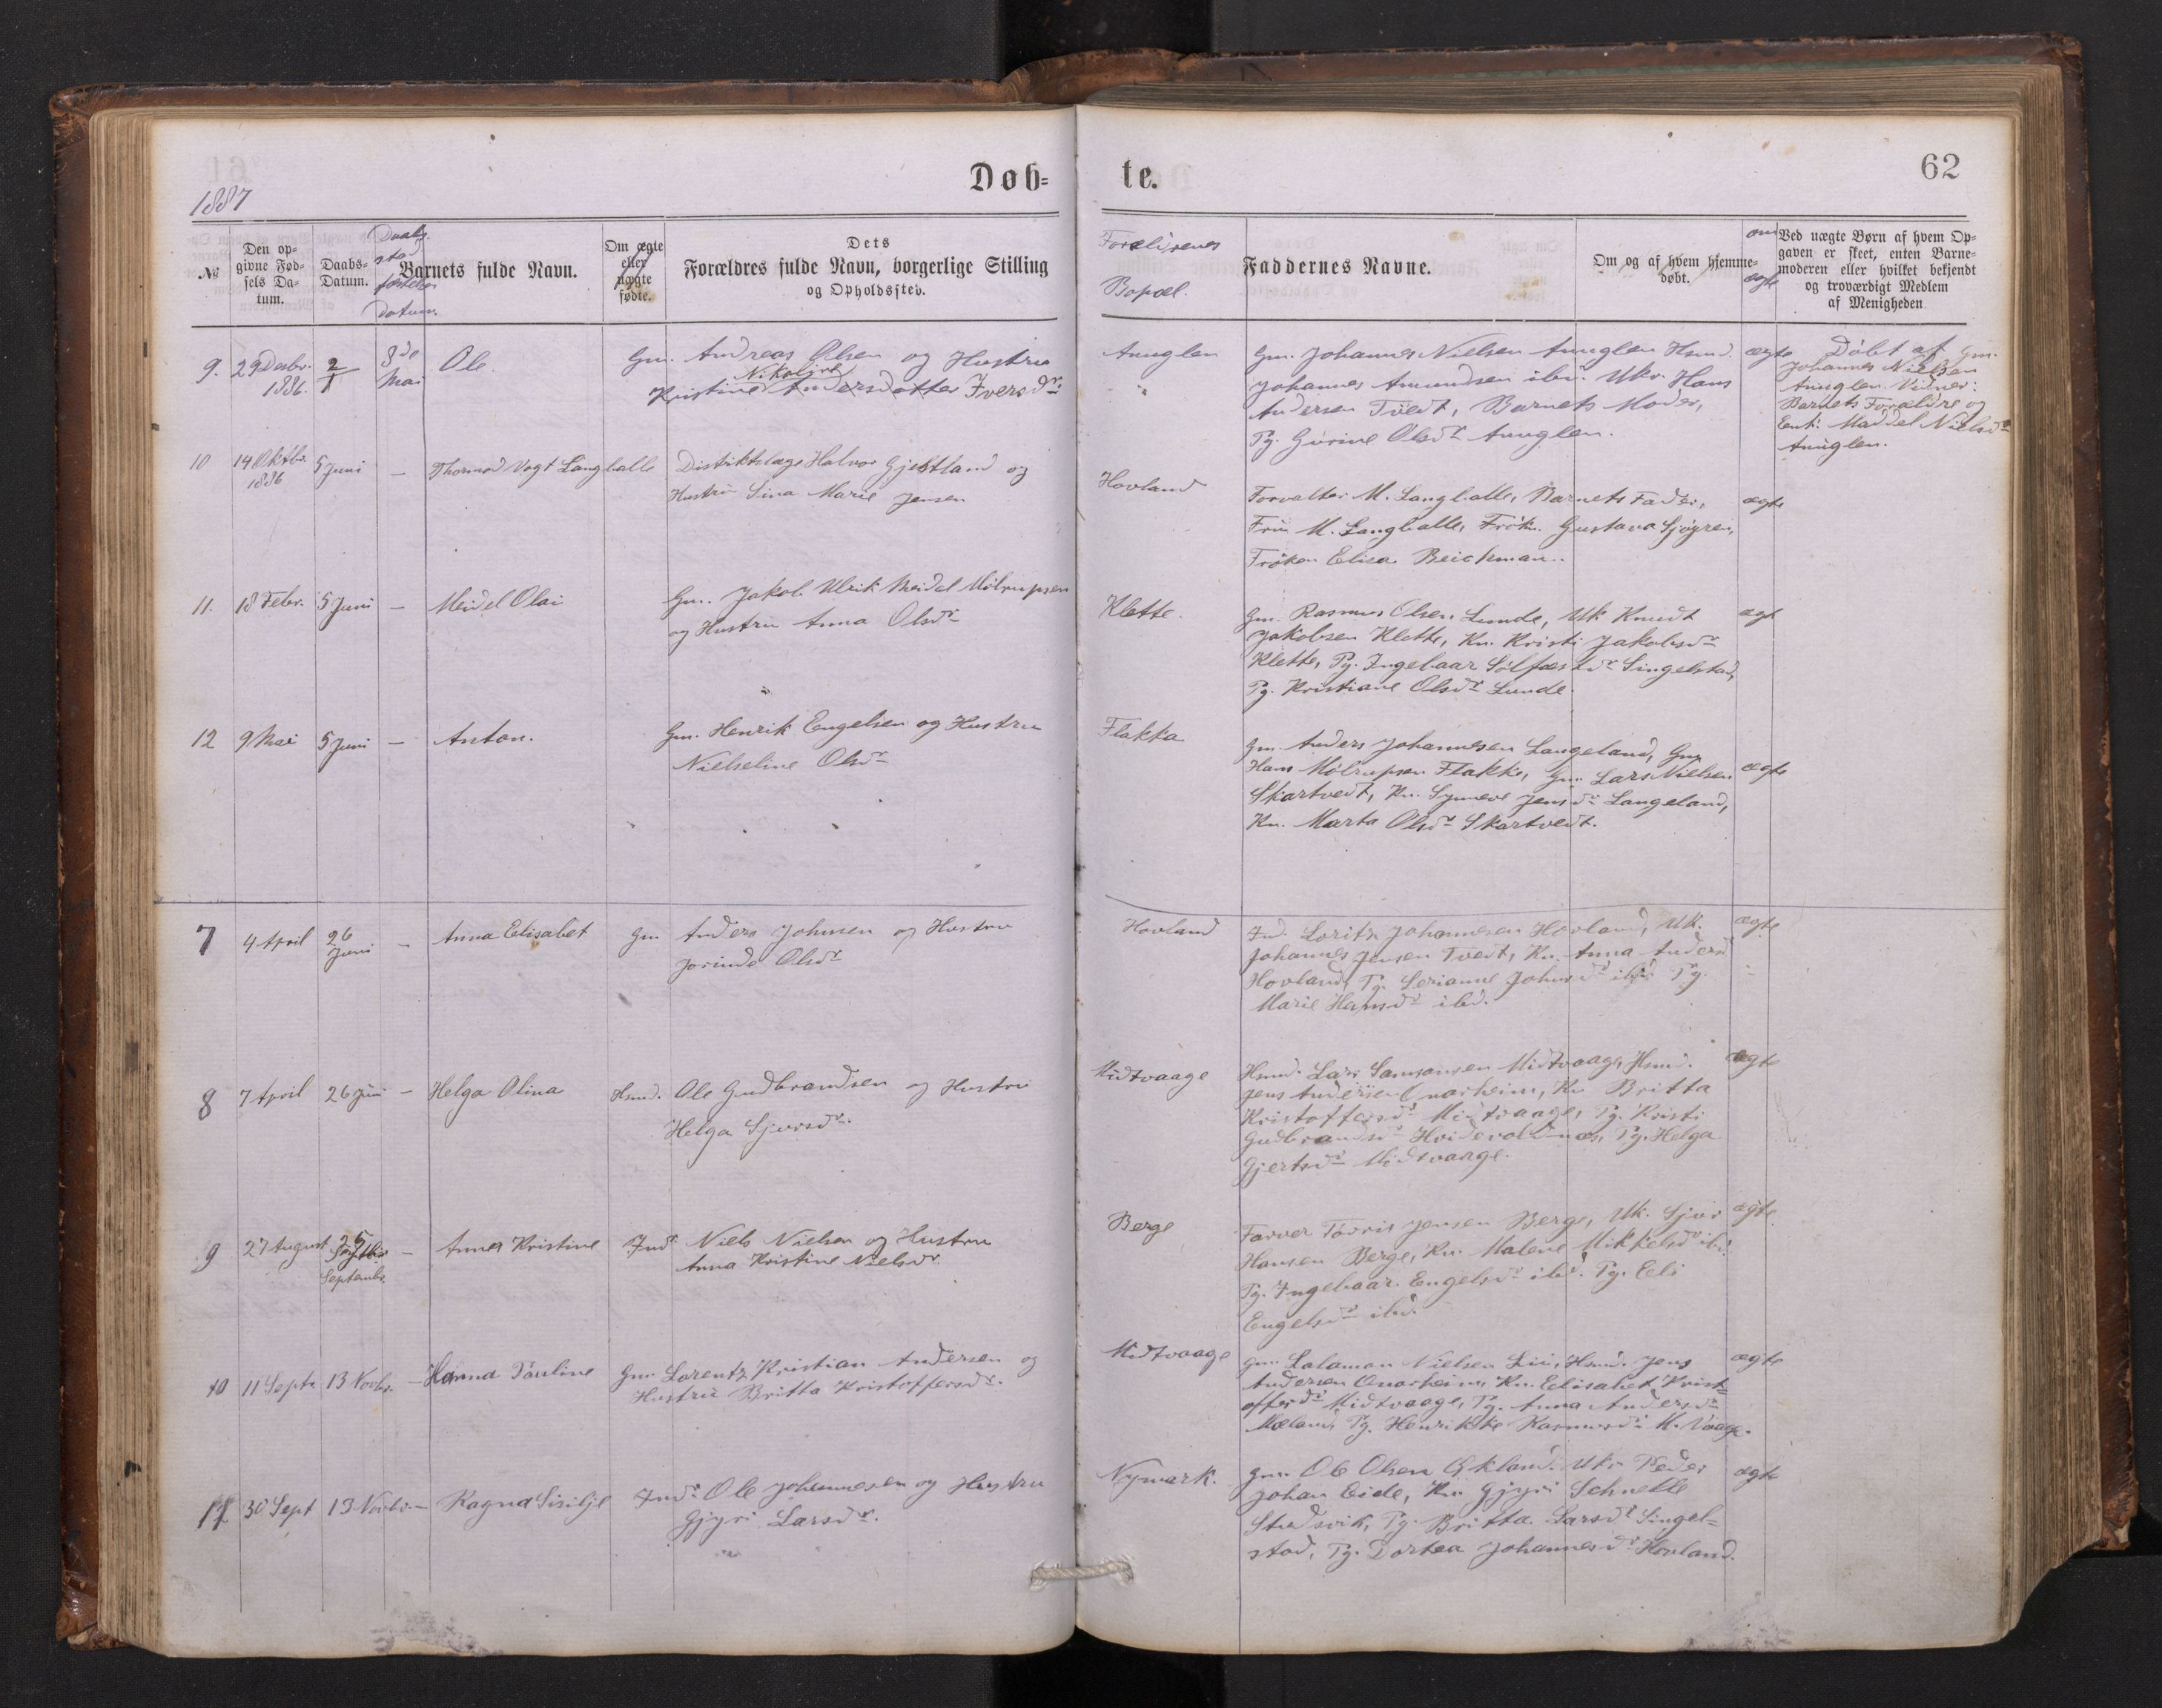 1887
Døb=
te.
62
№
Den op=
givne Fød=
sels Da=
tum.
Daabs=
Datum.
Daabs
stad
festelses
datum.
Barnets fulde Navn.
Om ægte
eller
uægte
fødte.
Dets
Forældres fulde Navn, borgerlige Stilling
og Opholdssted.
Forældrenes
Bopæl.
Faddernes Navne.
Om og af hvem hjemme-
døbt.
om
ægte
Ved uægte Børn af hvem Op-
gaven er skeet, enten Barne-
moderen eller hvilket bekjendt
og troværdigt Medlem
af Menigheden.
9. 29 Decbr.
1886.
2/1
8de
Mai
Ole
Gm. Andreas Olsen og Hustru
Nikoline
Kristine Andersdatter Iversdr.
Anuglen
"
Gm. Johannes Nielsen Anuglen Hsmd.
Johannes Amundsen ibd. Ukr. Hans
Andersen Tvedt, Barnets Moder,
Pg. Gurine Olsdr Anuglen.
ægte
Døbt af Gm.
Johannes Nielsen
Anuglen. Vidner:
Barnets Forældre og
Enk: Maddel Nielsdr
Anuglen.
10 14 Oktbr.
1886
5 Juni – Thormod Vogt Langballe
Distriktslæge Halvor Gjestland og
Hustru Sina Marie Jensen
Hovland
Forvalter M. Langballe, Barnets Fader,
Fru M. Langballe, Frøk. Gustava Sjøgren,
Frøken Elisa Beichman.
ægte
11. 18 Febr. 5 Juni – Meidel Olai
Gm. Jakob Ulrik Meidel Mölrupsen
og Hustru Anna Olsdr
Klette.
Gm. Rasmus Olsen Lunde, Uk Knudt
Jakobsen Klette, Kn. Kristi Jakobsdr
Klette, Pg. Ingebaar Sölfæstdr Singelstad,
Pg. Kristiane Olsdr Lunde.
ægt
12 9 Mai 5 Juni – Anton.
Gm. Henrik Engelsen og Hustru
Nielseline Olsdr
Flakka
Gm. Anders Johannesen Langeland, Gm.
Hans Mölrupsen Flakke, Gm. Lars Nielsen
Skartvedt, Kn. Synneve Jensdr Langeland,
Kn. Marta Olsdr Skartvedt.
ægte
7 4 April 26
Juni – Anna Elisabet
Gm Anders Johnsen og Hustru
Jorinde Olsdr
Hovland
Ind. Loritz Johannesen Hovland, Uk.
Johannes Jensen Tvedt, Kn. Anna Andersd
Hovland, Pg. Serianne Johnsdr ibd. Pg.
Marie Hansdr ibd.
ægte
8 7 April 26 Juni – Helga Olina
Hsmd. Ole Gudbrandsen og Hustru
Helga Sjursdr.
Midtvaage
Hsmd. Lars Samsonsen Midtvaage, Hsmd.
Jens Andersen Onarheim, Kn Britta
Kristoffersdr Midtvaage, Pg. Kristi
Gudbrandsdr Hvidevoldnæs, Pg. Helga
Gjertsdr Midtvaage.
ægte
9 27 August 25
Septembr. – Anna Kristine
Indr Niels Nielsen og Hustru
Anna Kristine Nielsdr.
Berge
Farver Torris Jensen Berge, Uk. Sjur
Hansen Berge, Kn. Malene Mikkelsdr ibd.
Pg. Ingebaar Engelsdr ibd. Pg. Eli
Engelsdr ibd.
ægte
10 11 Septr 13 Novbr. – Hanna Pauline
Gm. Lorentz Kristian Andersen og
Hustru Britta Kristoffersdr.
Midtvaage
Gm. Salamon Nielsen Lii, Hsmd. Jens
Andersen Onarheim, Kn. Elisabet Krist=
offersdr Midtvaage, Pg. Anna Andersdr
Mæland, Pg. Henrikke Rasmusdr M. Vaage.
ægte
11 30 Sept 13 Novbr. – Ragna Sisilje
Indr Ole Johannesen og Hustru
Gjyri Larsdr.
Nymark.
Gm. Ole Olsen Økland. Ukr Peder
Johan Eide, Kn Gjyri Schnelle
Stusvik, Pg. Britta Larsdr Singel=
stad, Pg. Dortea Johannesdr Hovland.
ægte